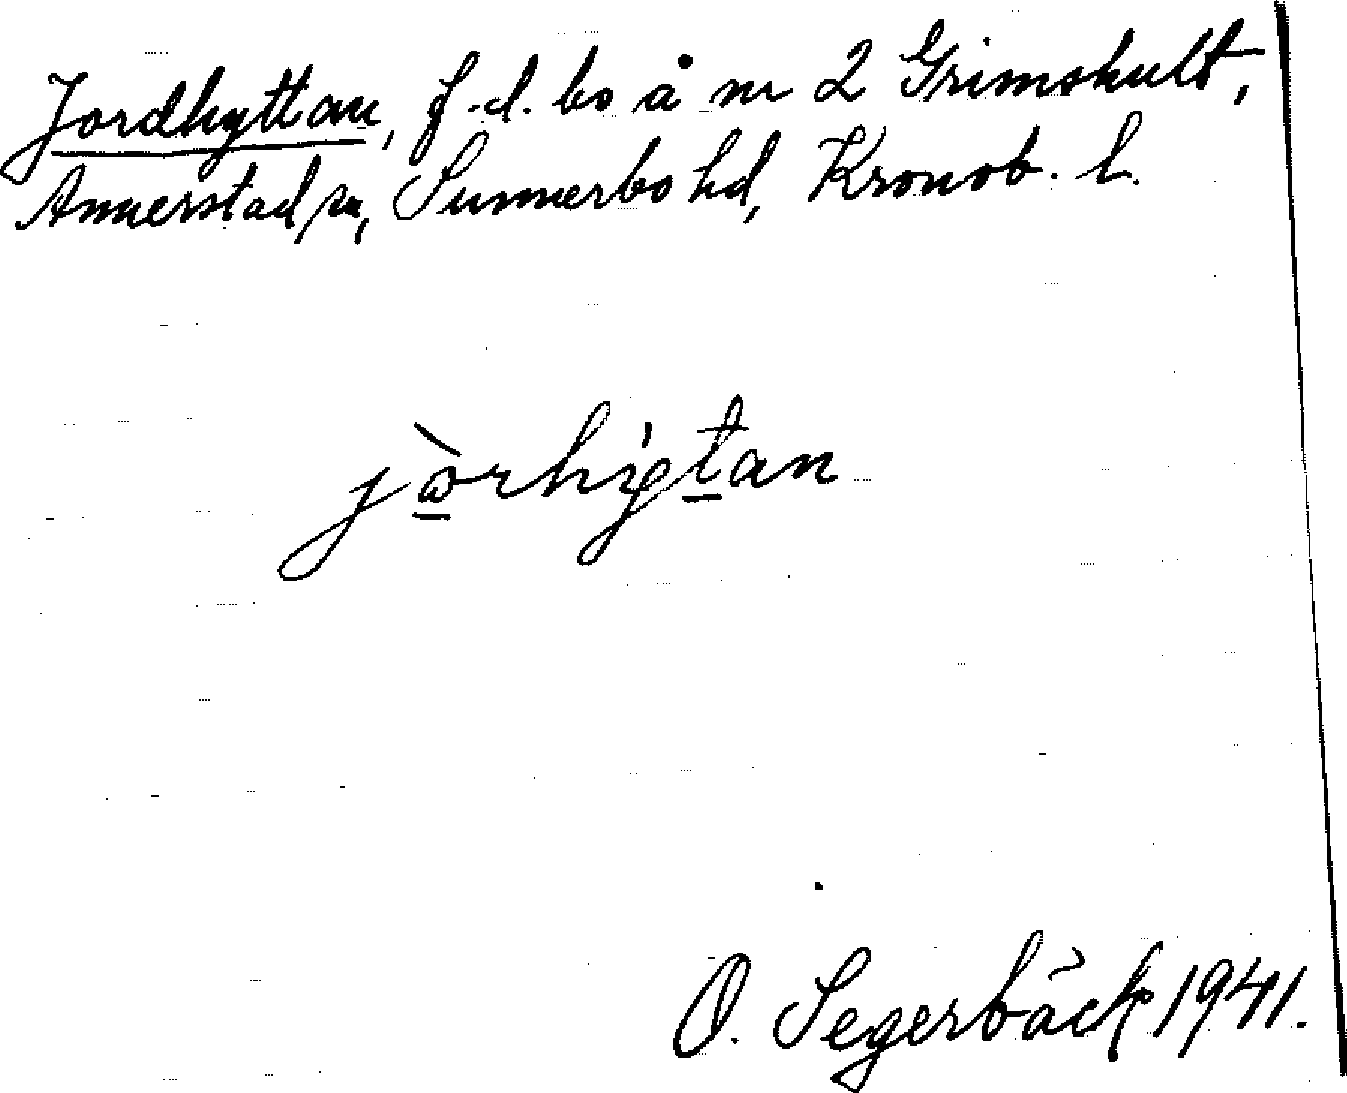 Jordhyttan, f.d. bo å nr 2 Grimshult,
Annerstad sn, Sunnerbo hd, Kronob. l.
O. Segerbäck 1941.